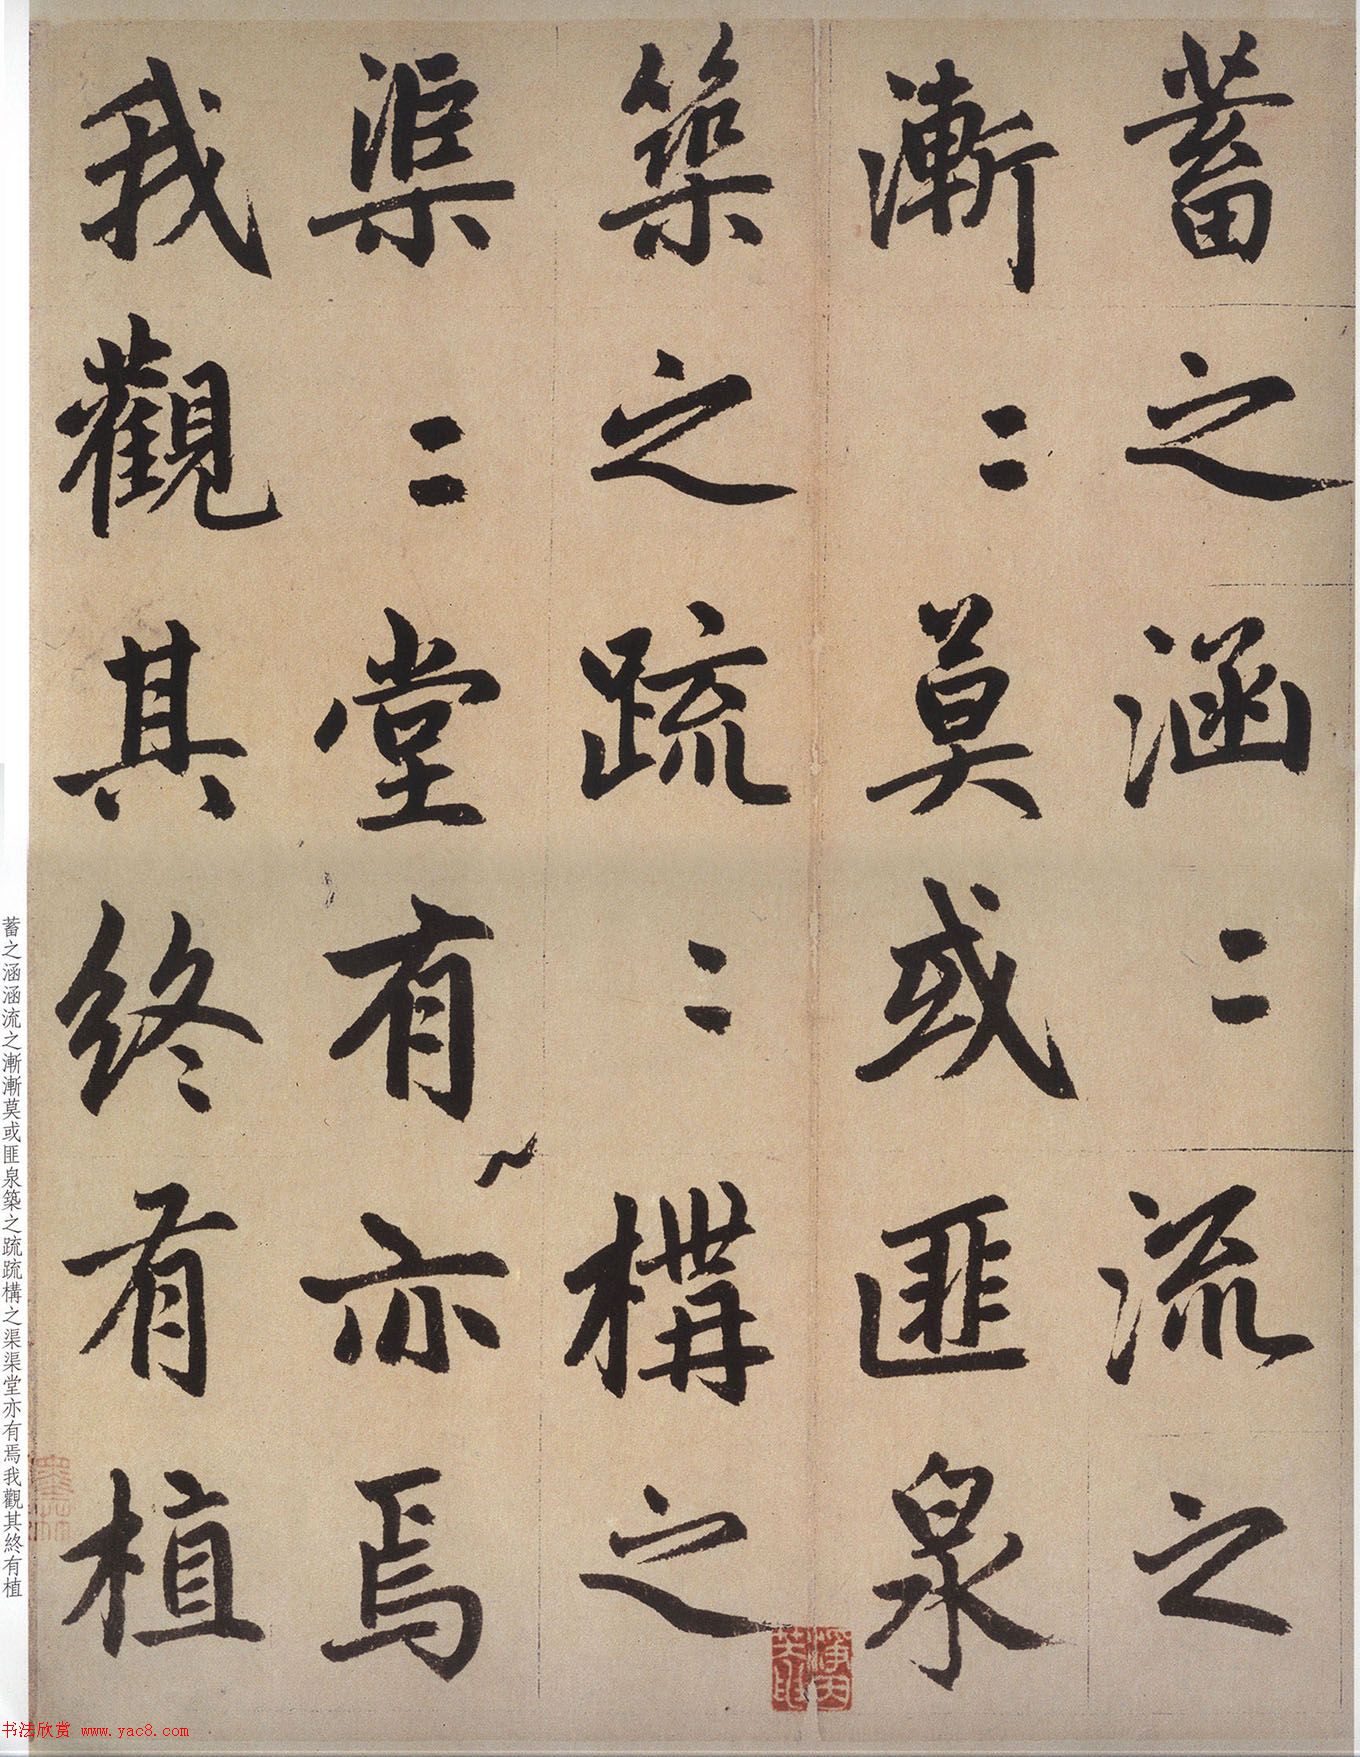 蓄之涵〻流之
漸〻莫或匪泉
築之疏〻構之
渠〻堂有亦焉
我觀其終有植
蓄之涵涵流之漸漸莫或匪泉築之疏疏構之渠渠堂亦有焉我觀其終有植
书法欣赏 www.yac8.com